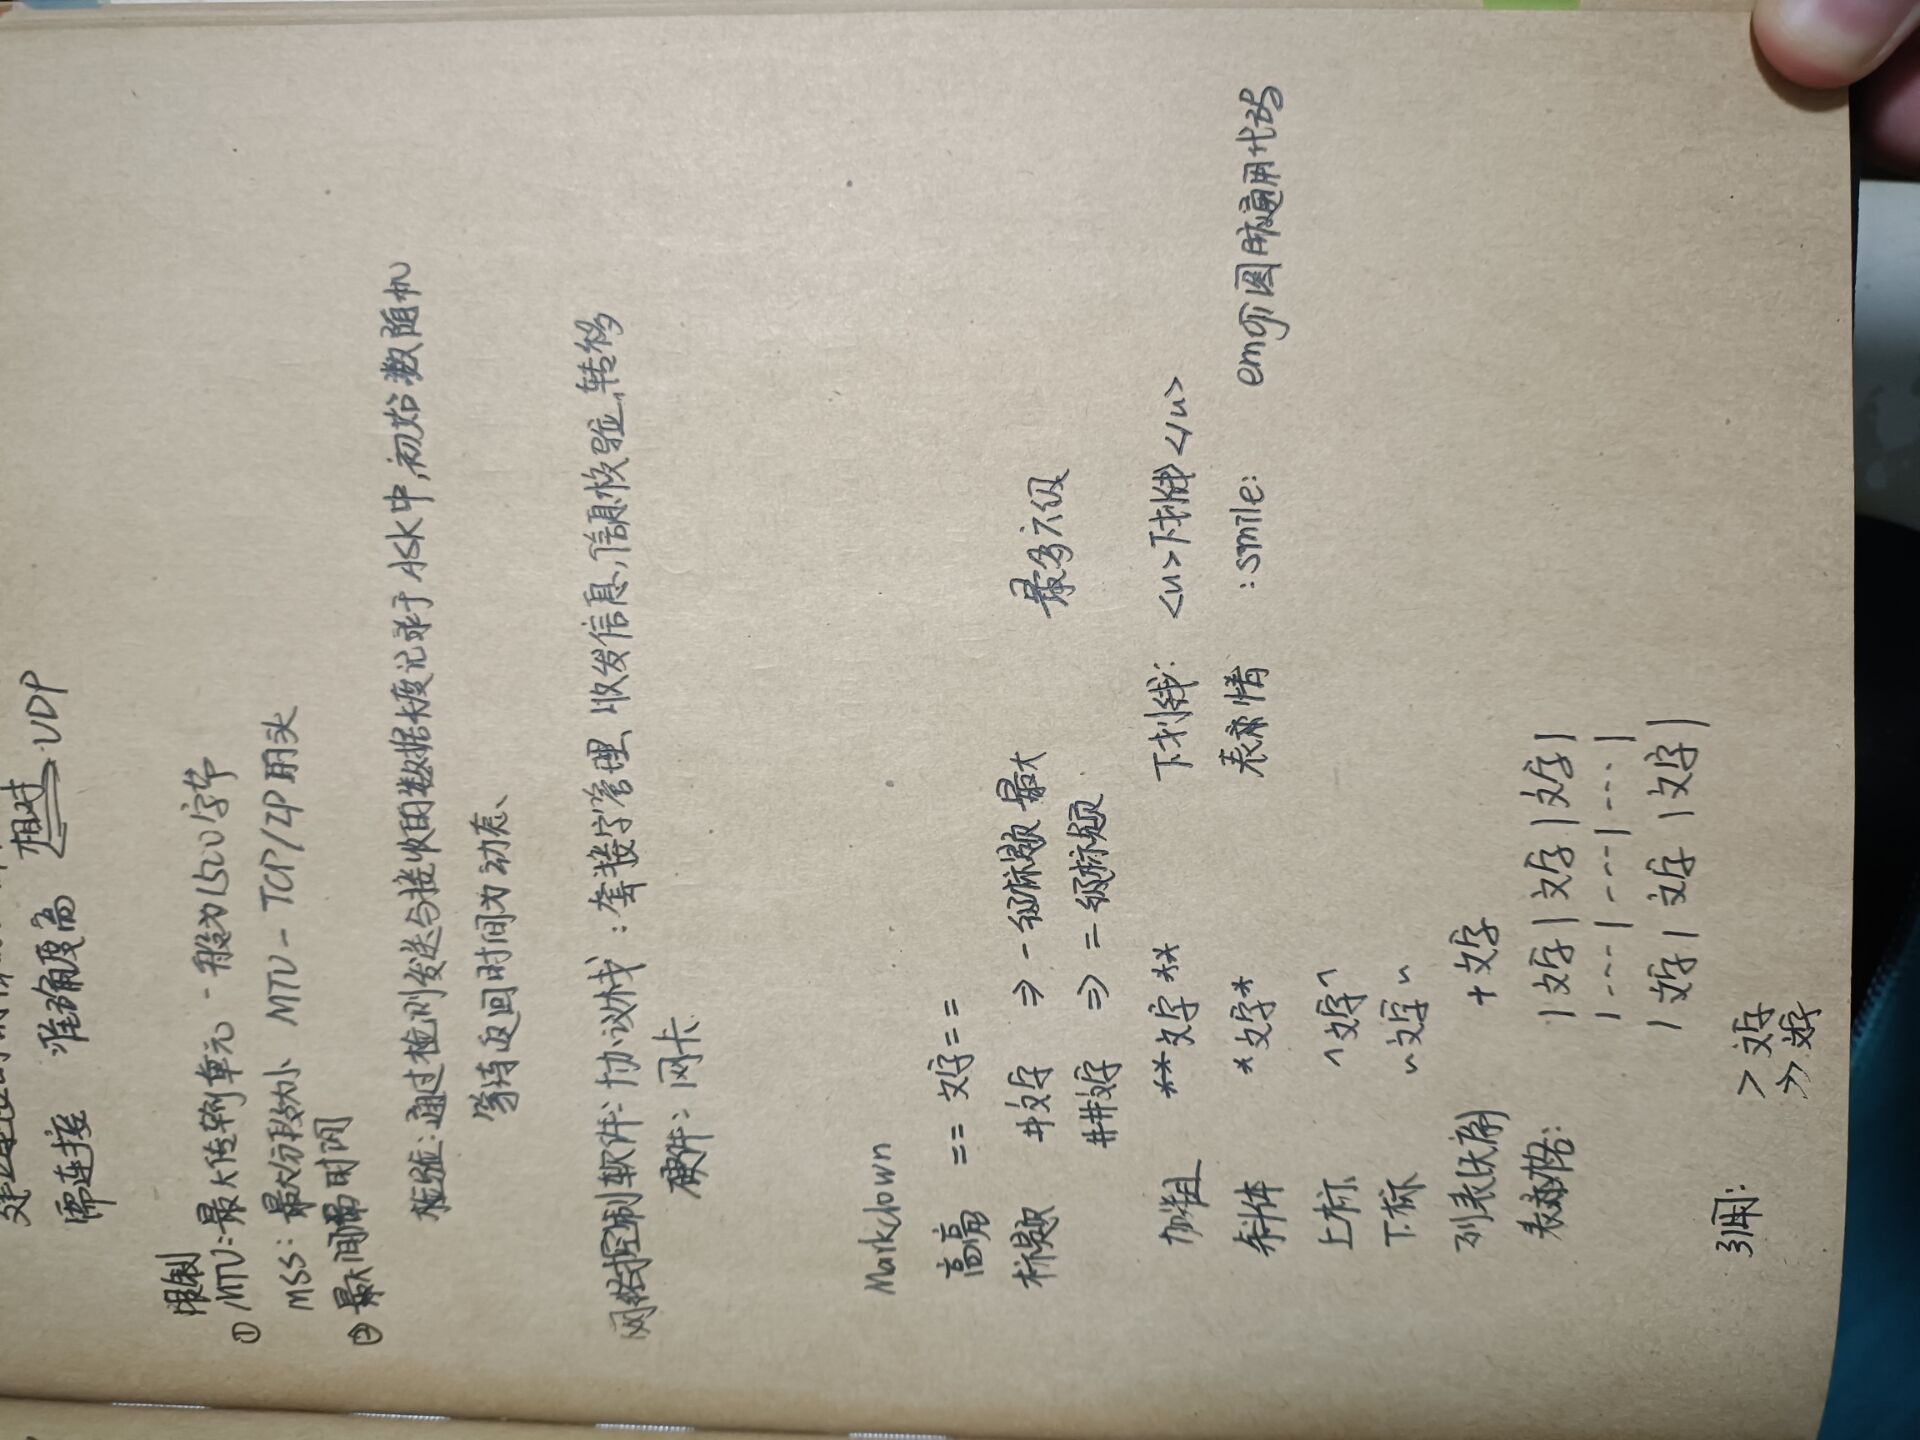 需连接 准确度高 相对 UDP
限制
① MTU:最大传输单元 一般为1500字节
MSS:最大分段大小 MTU - TCP/IP的头
② 最大间隔时间
检验:通过检测发送与接收的数据长度记录于ASK中,初始数随机
等待返回时间为动态、
网络控制软件:协议栈:套接字管理、收发信息,信息校验,转移
硬件:网卡
Markdown
高亮 == 文字==
标题 #文字 ⇒ 一级标题 最大 最多六级
##文字 ⇒ 二级标题
加粗 **文字** 下划线: <u>下划线</u>
斜体 *文字* 表情 :smile: emoji图标通用代码
上标 ^文字^
下标 ~文字~
列表(无序) +文字
表格: |文字|文字|文字|
|---|---|---|
|文字|文字|文字|
引用: > 文字
>> 文字